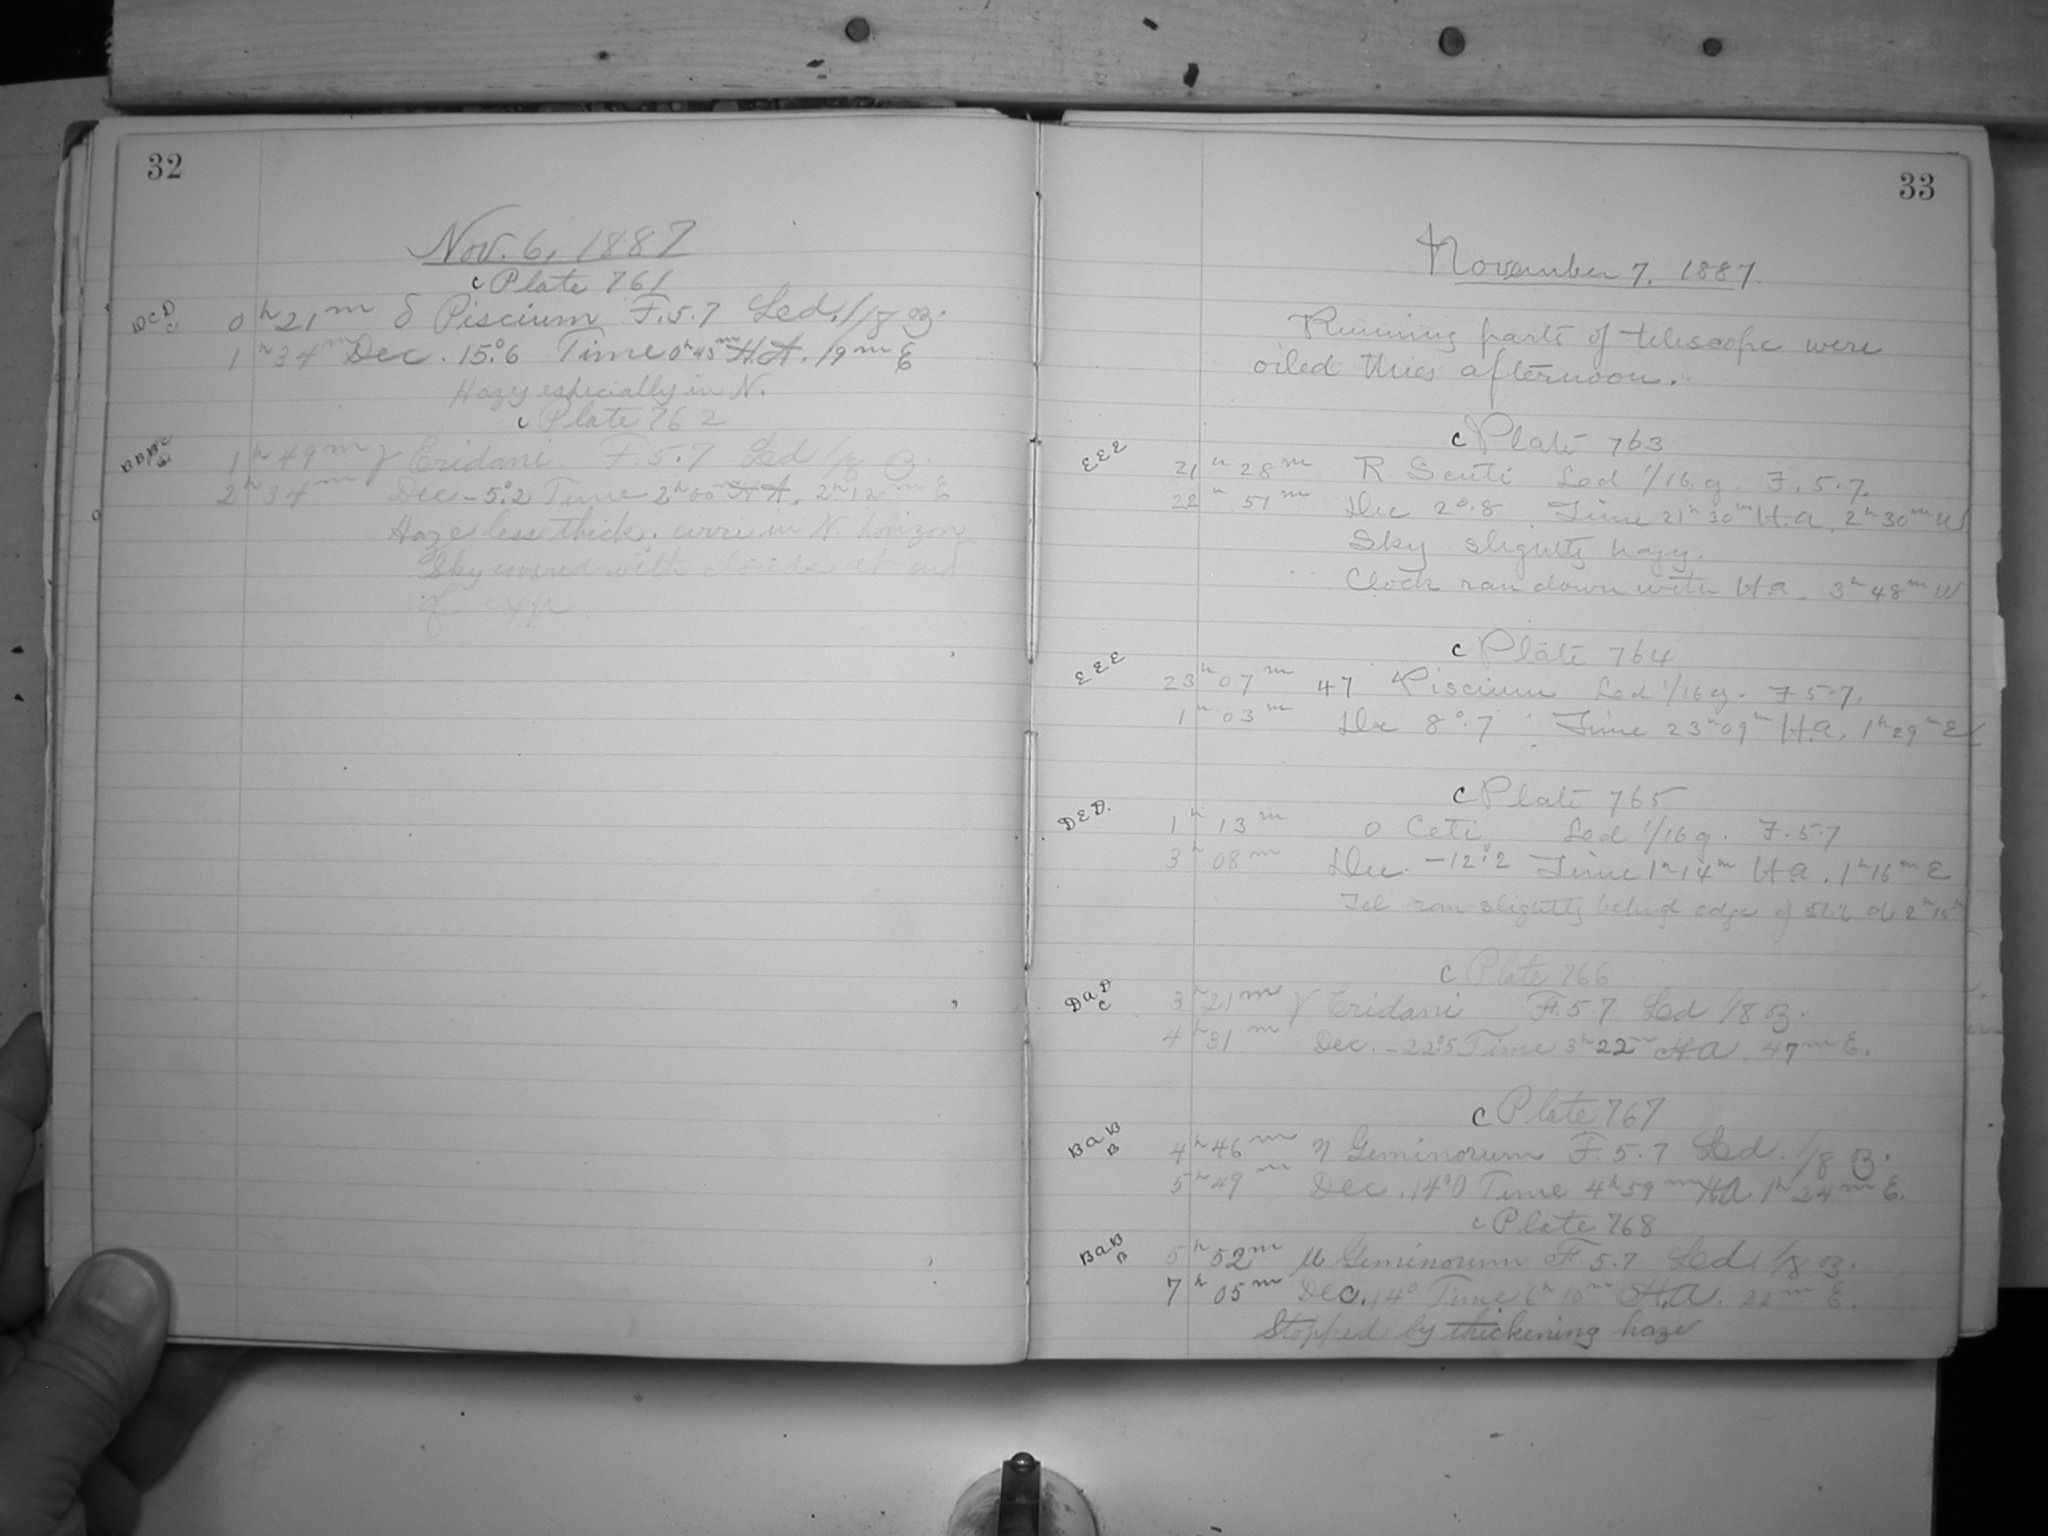 32
Nov. 6, 1887
c Plate 761
DCD C 0h 21m δ Piscium F. 5.7 Sed. 1/8 B.
1h 34m Dec. 15°.6 Time 0h 43m H.A. 19m E
Hazy especially in N.
c Plate 762
1h 49m γ Eridani F. 5.7 Sed 1/8 B.
2h 34m Dec - 5°.2 Time 2h 00m H.A. 2h 12m E
Haze less thick. cirri in N. horizon
Sky covered with clouds at end
of exp.
33
November 7, 1887
Running parts of telescope were
oiled this afternoon.
c Plate 763
EEE 21h 28m R Scuti Sed 1/16 g. F. 5.7.
22h 57m Dec 2°.8 Time 21h 30m H.a. 2h 30m W
Sky slightly hazy.
Clock ran down with H a. 3h 48m W
c Plate 764
EEE 23h 07m 47 Piscium Sed 1/16 g. F 5.7.
1h 03m Dec 8°.7 Time 23h 09m H.a. 1h 29m E
c Plate 765
DED. 1h 13m o Ceti Sed 1/16 g. F. 5.7
3h 08m Dec. -12°.2 Time 1h 14m H a. 1h 16m E
Tel ran slightly behind edge of slit at 2h 15m
c Plate 766
DaD C 3h 21m γ Eridani F. 5.7 Sed 1/8 B.
4h 31m Dec. -22°.5 Time 3h 22m H.a. 47m E.
c Plate 767
BaB B 4h 46m η Geminorum F. 5.7 Sed. 1/8 B.
5h 49m Dec. 14°.0 Time 4h 59m H.A. 1h 24m E.
c Plate 768
BaB B 5h 52m μ Geminorum F. 5.7 Sed. 1/8 B.
7h 05m Dec. 14° Time 6h 10m H.A. 22m E.
Stopped by thickening haze